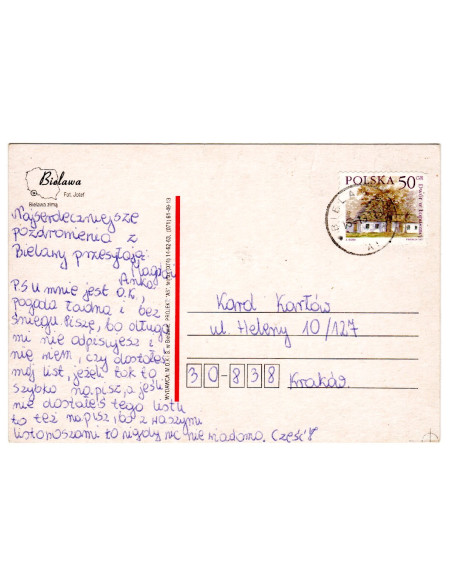 Bielawa
Fot. Josef
Bielawa zimą
POLSKA 50 GR
BIELA
Najserdeczniejsze
pozdrowienia z
Bielawy przesyłają:
Magda i
Anka
P.S U mnie jest O.K,
pogoda ładna i bez
śniegu. Piszę, bo długo
mi nie odpisujesz i
nie wiem, czy dostałeś
mój list, jeżeli tak to
szybko napisz, a jeśli
nie dostałeś tego listu
to też napisz, bo z naszymi
listonoszami to nigdy nic nie wiadomo. Cześć!
Kard Kartów
ul. Heleny 10/127
30-838
Kraków